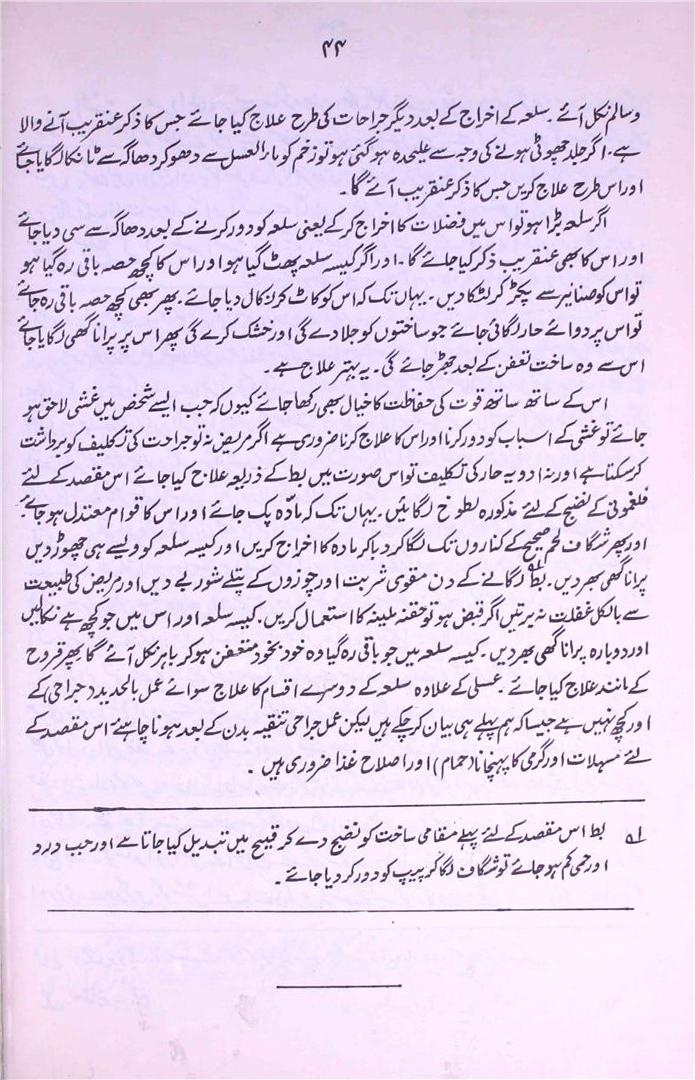 ۴۴
وسالم نکل آئے۔ سلعہ کے اخراج کے بعد دیگر جراحات کی طرح علاج کیا جائے جس کا ذکر عنقریب آنے والا
ہے۔ اگر جلد چھوٹی ہونے کی وجہ سے علیحدہ ہوگئی ہو تو زخم کو ماء العسل سے دھو کر دھاگہ سے ٹانکا لگایا جائے
اور اس طرح علاج کریں جس کا ذکر عنقریب آئے گا۔
اگر سلعہ بڑا ہو تو اس میں فضلات کا اخراج کرکے یعنی سلعہ کو دور کرنے کے بعد دھاگہ سے سی دیا جائے
اور اس کا بھی عنقریب ذکر کیا جائے گا۔ اور اگر کیسہ سلعہ پھٹ گیا ہو اور اس کا کچھ حصہ باقی رہ گیا ہو
تو اس کو صنانیر سے پکڑ کر لٹکا دیں۔ یہاں تک کہ اس کو کاٹ کر نکال دیا جائے۔ پھر بھی کچھ حصہ باقی رہ جائے
تو اس پر دوائے حار لگائی جائے جو ساختوں کو جلا دے گی اور خشک کرے گی پھر اس پر پرانا گھی لگایا جائے
اس سے وہ ساخت تعفن کے بعد جھڑ جائے گی۔ یہ بہتر علاج ہے۔
اس کے ساتھ ساتھ قوت کی حفاظت کا خیال بھی رکھا جائے کیوں کہ جب ایسے شخص میں غشی لاحق ہو
جائے تو غشی کے اسباب کو دور کرنا اور اس کا علاج کرنا ضروری ہے اگر مریض نہ تو جراحت کی تکلیف کو برداشت
کر سکتا ہے اور نہ ادویہ حار کی تکلیف تو اس صورت میں بط کے ذریعہ علاج کیا جائے اس مقصد کے لئے
فلغمونی کے نضج کے لئے مذکورہ لطوخ لگائیں۔ یہاں تک کہ مادّہ پک جائے اور اس کا قوام معتدل ہو جائے۔
اور پھر شگاف لحم صحیح کے کناروں تک لگا کر دبا کر مادہ کا اخراج کریں اور کیسہ سلعہ کو ویسے ہی چھوڑ دیں
پرانا گھی بھر دیں۔ بط۱؎ لگانے کے دن مقوی شربت اور چوزوں کے پتلے شوربے دیں اور مریض کی طبیعت
سے بالکل غفلت نہ برتیں اگر قبض ہو تو حقنہ ملینہ کا استعمال کریں۔ کیسہ سلعہ اور اس میں جو کچھ ہے نکالیں
اور دوبارہ پرانا گھی بھر دیں۔ کیسہ سلعہ میں جو باقی رہ گیا وہ خود بخود متعفن ہو کر باہر نکل آئے گا پھر قروح
کے مانند علاج کیا جائے۔ عسلی کے علاوہ سلعہ کے دوسرے اقسام کا علاج سوائے عمل بالحدید (جراحی) کے
اور کچھ نہیں ہے جیسا کہ ہم پہلے ہی بیان کر چکے ہیں لیکن عمل جراحی تنقیہ بدن کے بعد ہونا چاہئے اس مقصد کے
لئے مسہلات اور گرمی کا پہنچانا (حمام) اور اصلاح غذا ضروری ہیں۔
۱؎ بط اس مقصد کے لئے پہلے مقامی ساخت کو نضج دے کر قیح میں تبدیل کیا جاتا ہے اور جب درد
اور حمی کم ہو جائے تو شگاف لگا کر پیپ کو دور کر دیا جائے۔